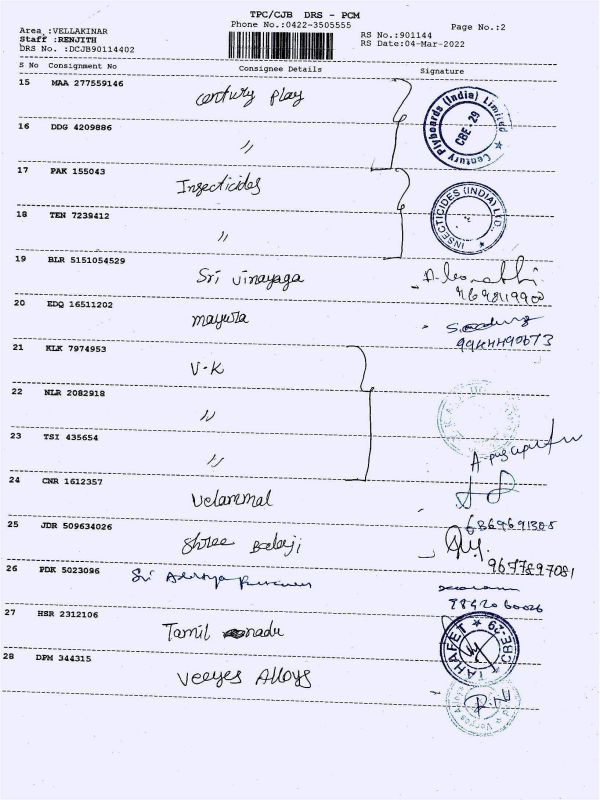 TPC/CJB DRS - PCM
Phone No.:0422-3505555
Page No.:2
Area :VELLAKINAR
Staff :RENJITH
DRS No. :DCJB90114402
RS No.:901144
RS Date:04-Mar-2022
S No Consignment No Consignee Details Signature
15 MAA 277559146 century play
Century Plyboards (India) Limited ★ CBE-29
16 DDG 4209886 〃
17 PAK 155043 Insecticides
INSECTICIDES (INDIA) LTD. ★
18 TEN 7239412 〃
19 BLR 5151054529 Sri vinayaga
20 EDQ 16511202 mayura
9944490673
21 KLK 7974953 V-K
22 NLR 2082918 〃
23 TSI 435654 〃
24 CNR 1612357 Velammal
25 JDR 509634026 Shree Balaji
9677897081
26 PDK 5023096 Sri
9842060026
27 HSR 2312106 Tamil nadu
TAHAFET ★ CBE-29 ★
28 DPM 344315 Veeyes Alloys